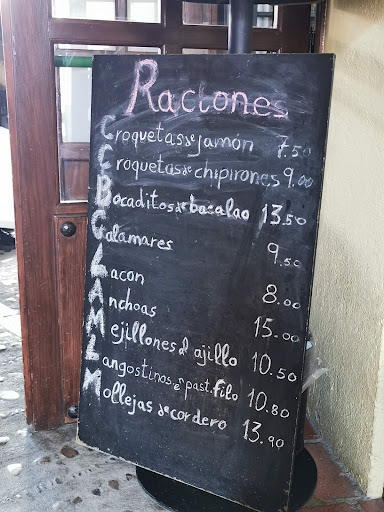 Raciones
Croquetas de jamón 7.50
Croquetas de chipirones 9.00
Bocaditos de bacalao 13.50
Calamares 9.50
Lacon 8.00
Anchoas 15.00
Mejillones al ajillo 10.50
Langostinos en past. filo 10.80
Mollejas de cordero 13.90